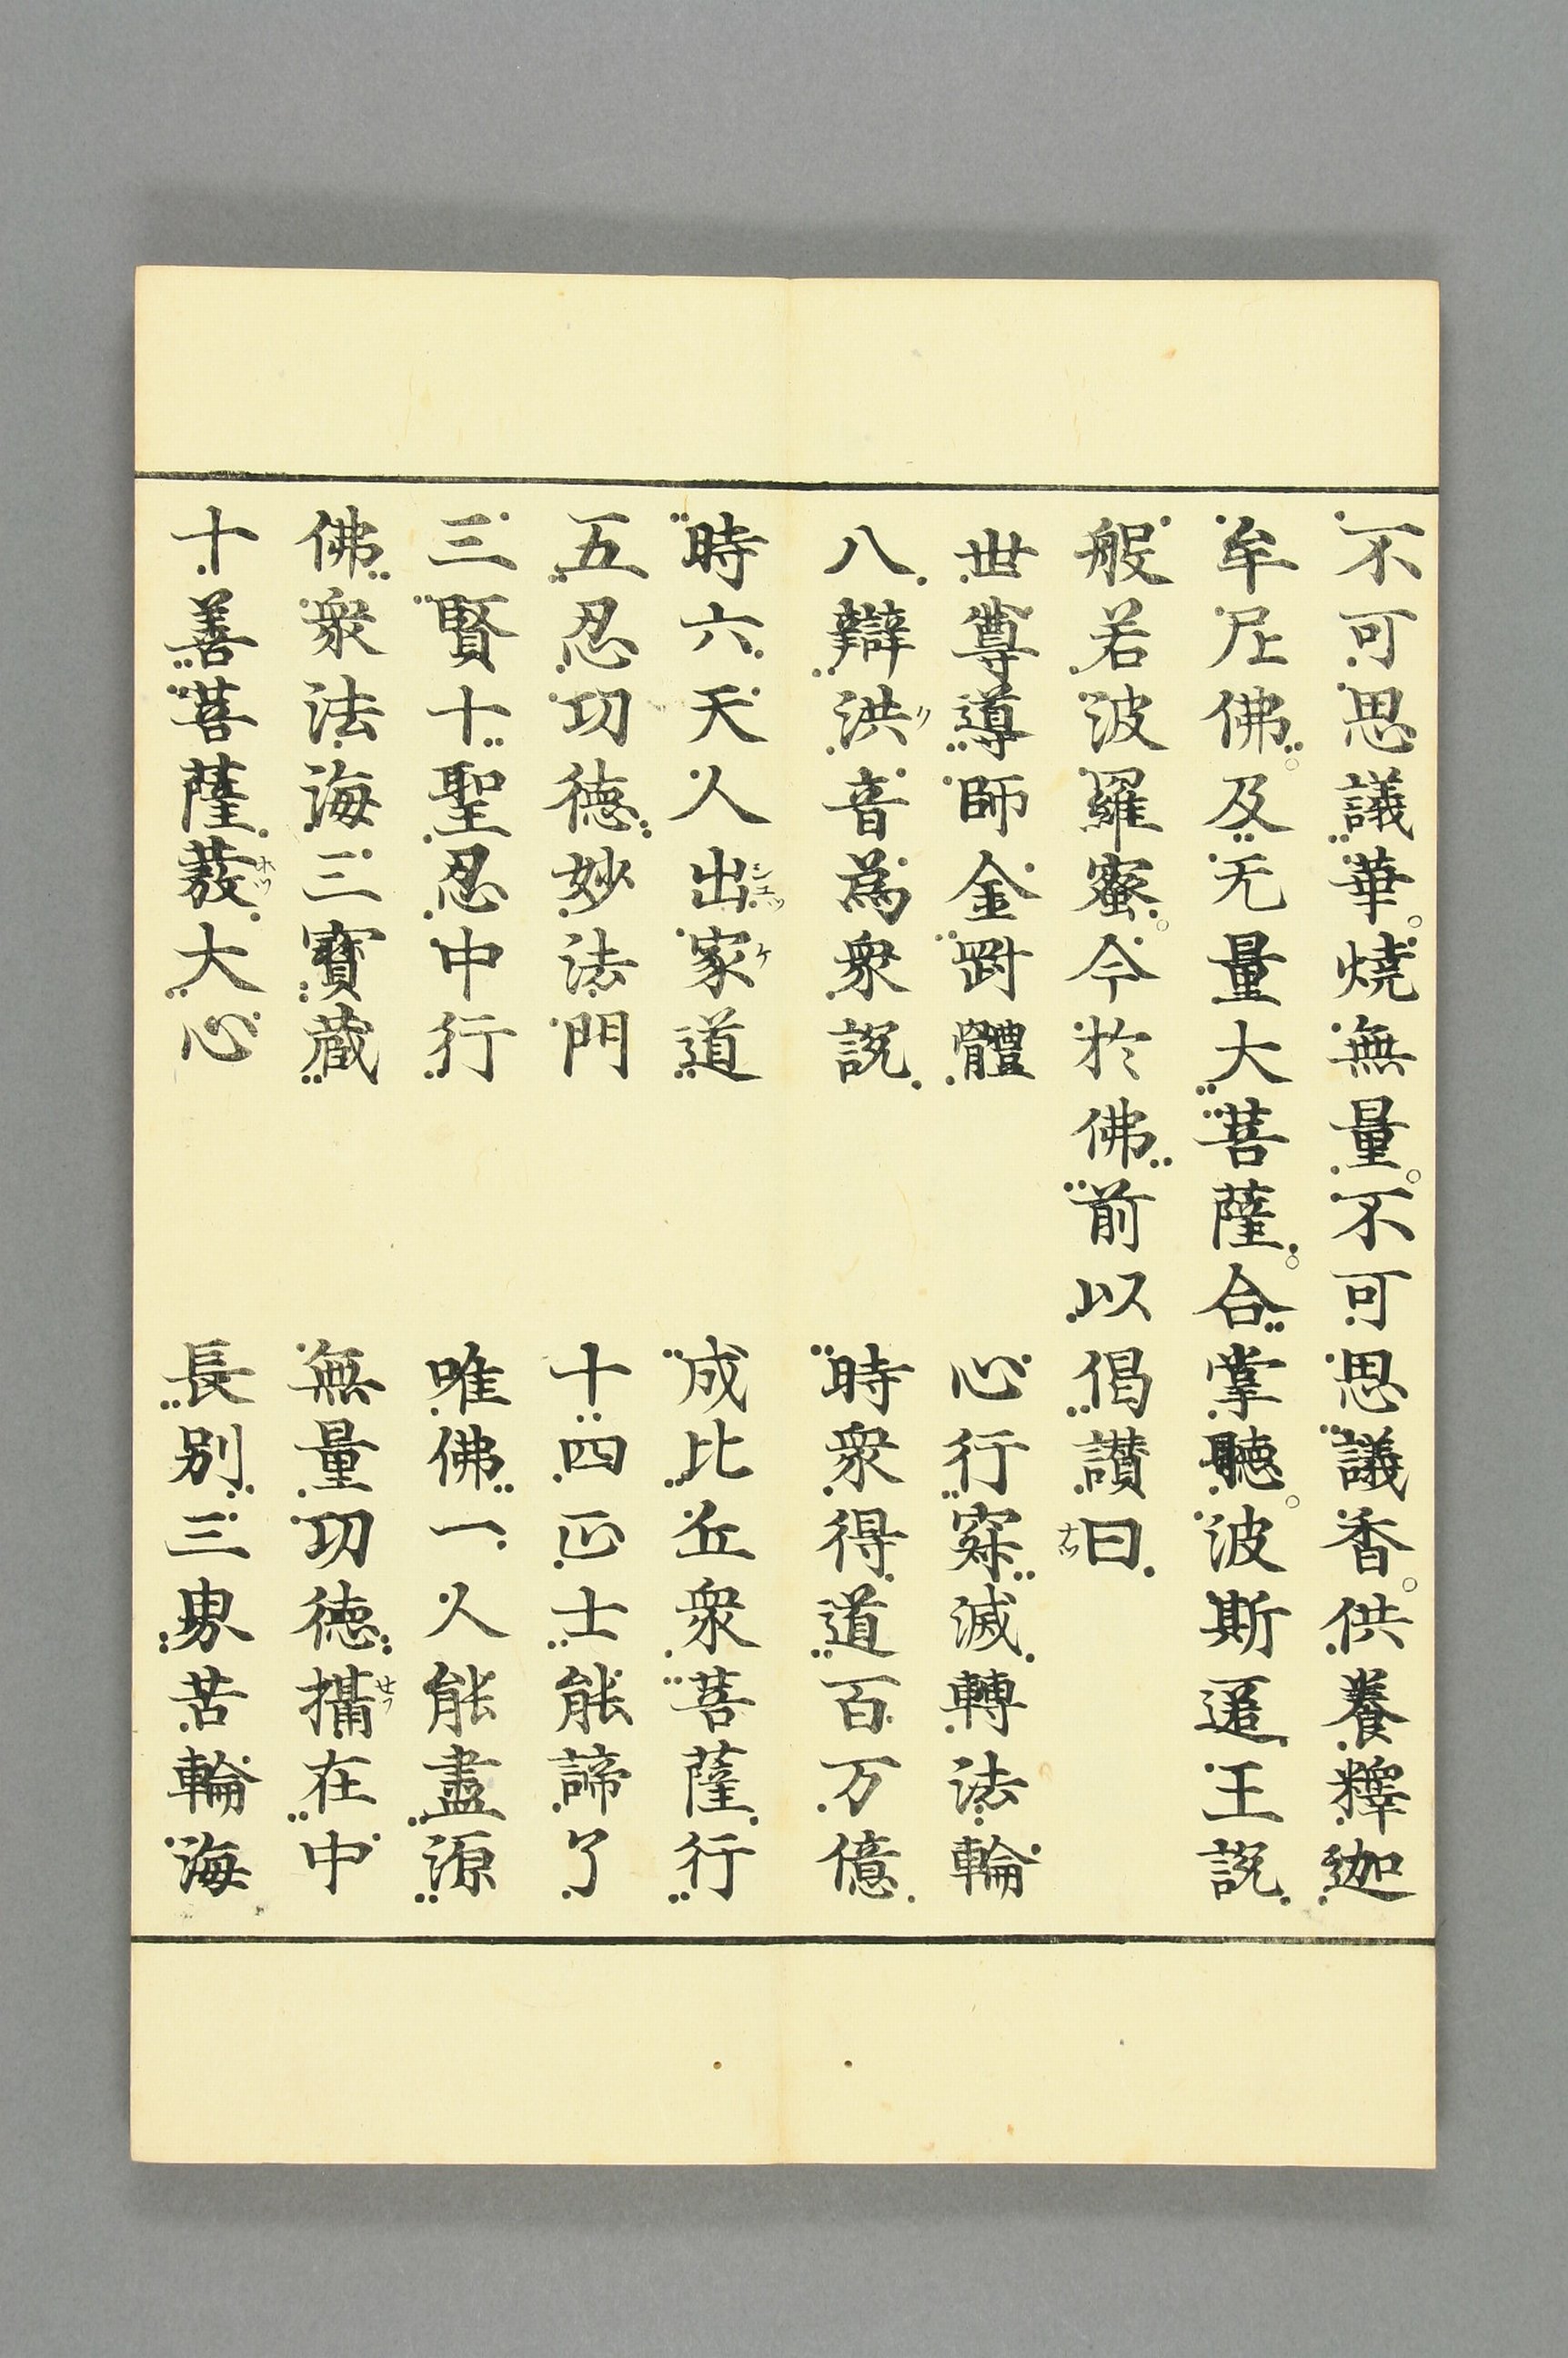 不可思議華燒無量不可思議香供養釋迦
牟尼佛及无量大菩薩合掌聽波斯匿王說
般若波羅蜜今於佛前以偈讃曰
世尊導師金剛體　心行寂滅轉法輪
八辯洪音為衆說　時衆得道百万億
時六天人出家道　成比丘衆菩薩行
五忍功德妙法門　十四正士能諦了
三賢十聖忍中行　唯佛一人能盡源
佛衆法海三寶藏　無量功德攝在中
十善菩薩發大心　長別三界苦輪海